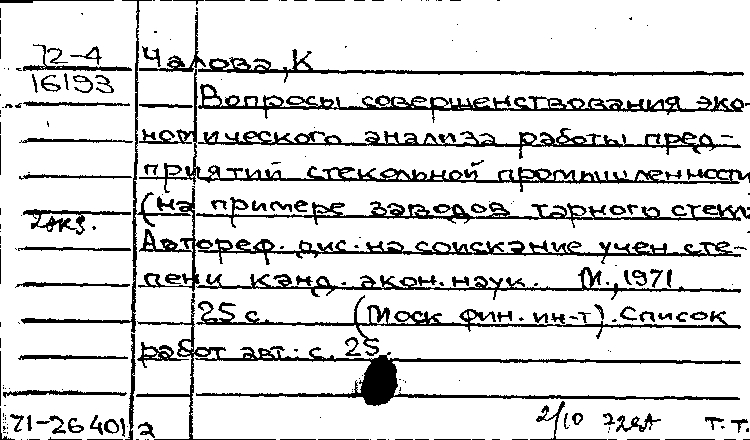 72-4 Чалова, К
16193
Вопросы совершенствования эко-
номического анализа работы пред-
приятий стекольной промышленности
(на примере заводов тарного стекла
2экз.
Автореф. дис. на соискание учен. сте-
пени канд. экон. наук. М., 1971.
25 с. (Моск. фин. ин-т). Список
работ авт.: с. 25.
71-26401 а 2/10 Т.Т.